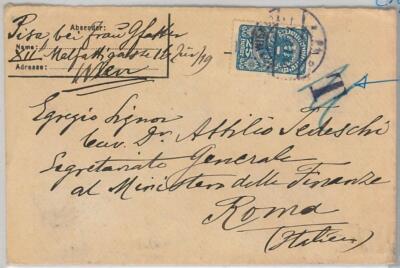 Absender:
Pisa, bei Frau
Name:
XII
Adresse:
Wien
25
T
Egregio Signor
Cav. Dr. Attilio Tedeschi
Segretariato Generale
al Ministero delle Finanze
Roma
(Italien)